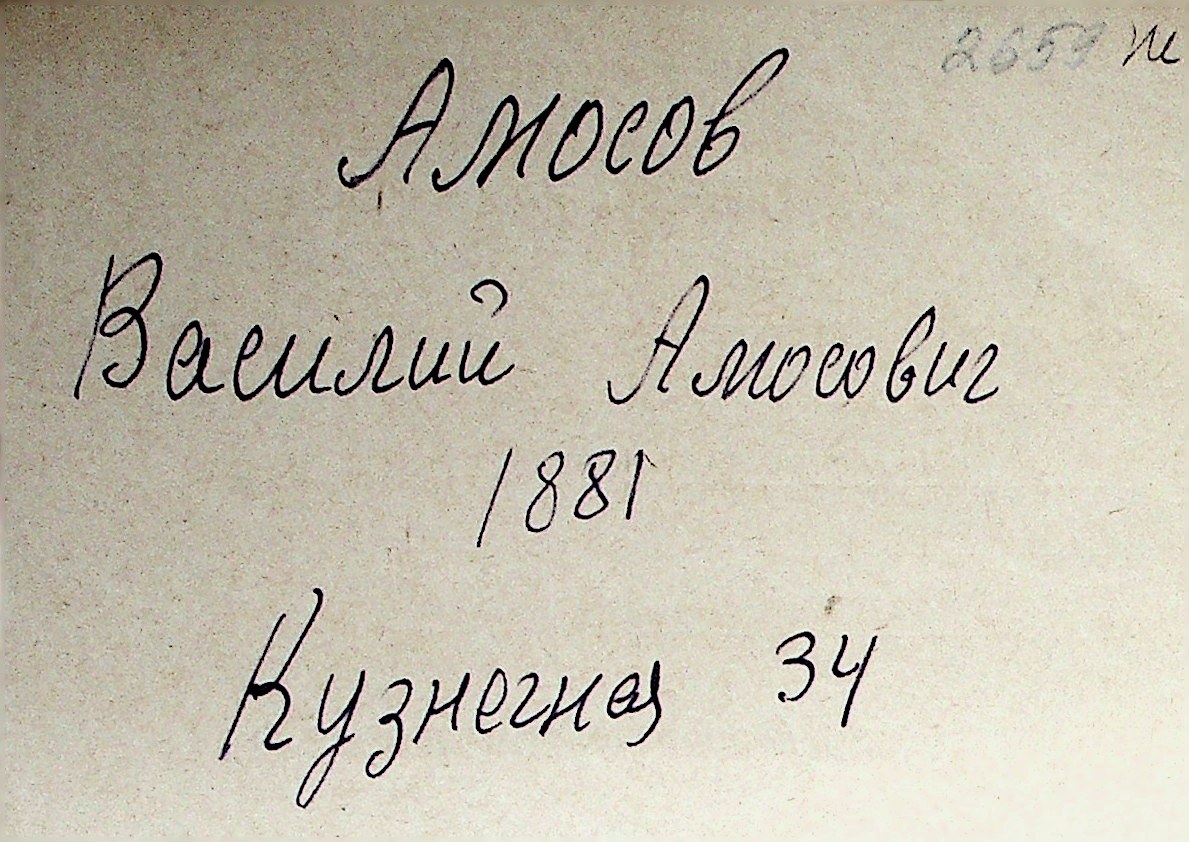 2659 Ж
Амосов
Василий Амосович
1881
Кузнечная 34